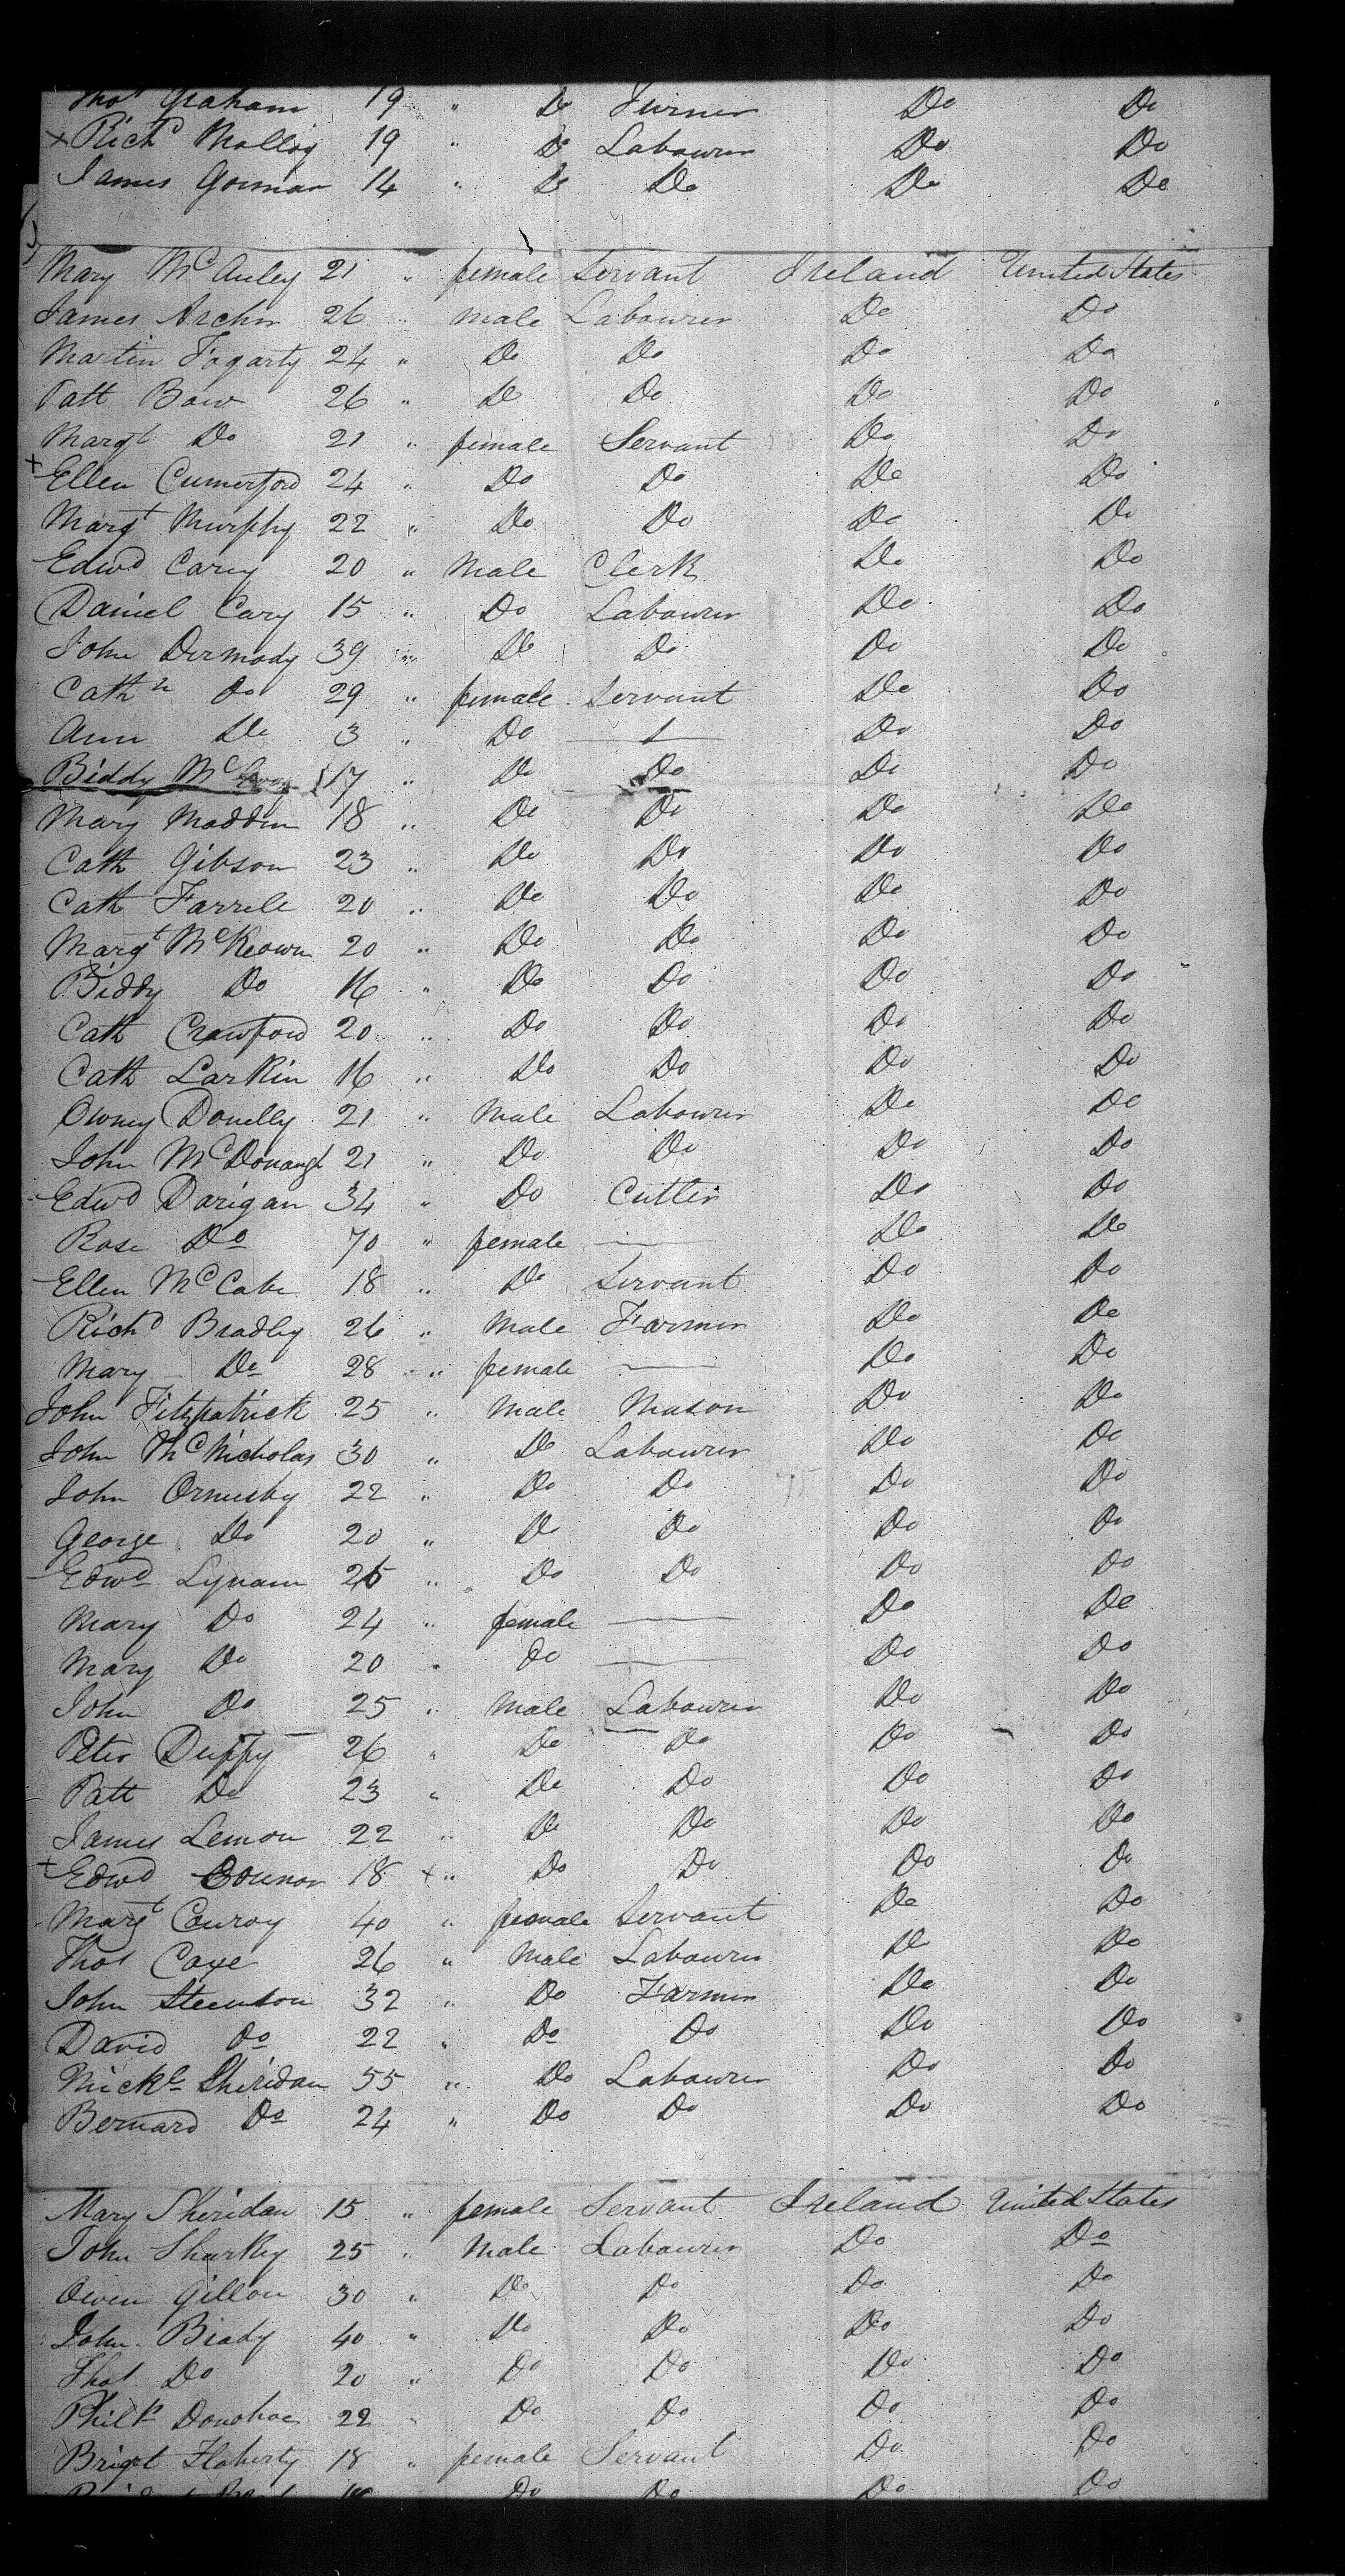 Thos Graham 19 " Do Turner Do Do
x Richd Molloy 19 " Do Labourer Do Do
James Gorman 14 " Do Do Do Do
Mary McAuley 21 " female Servant Ireland United States
James Archer 26 " male Labourer Do Do
Martin Fogarty 24 " Do Do Do Do
Patt Baw 26 " Do Do Do Do
Margt Do 21 " female Servant Do Do
x Ellen Cumerford 24 " Do Do Do Do
Margt Murphy 22 " Do Do Do Do
Edwd Carey 20 " Male Clerk Do Do
Daniel Cary 15 " Do Labourer Do Do
John Dermody 39 " Do Do Do Do
Cathn Do 29 " female Servant Do Do
Ann Do 3 " Do — Do Do
Biddy 17 " Do Do Do Do
Mary Madden 18 " Do Do Do Do
Cath Gibson 23 " Do Do Do Do
Cath Farrell 20 " Do Do Do Do
Margt McKeown 20 " Do Do Do Do
Biddy Do 16 " Do Do Do Do
Cath Crawford 20 " Do Do Do Do
Cath Larkin 16 " Do Do Do Do
Owney Donelly 21 " Male Labourer Do Do
John McDonaugh 21 " Do Do Do Do
Edwd Darigan 34 " Do Cutler Do Do
Rose Do 70 " female — Do Do
Ellen McCabe 18 " Do Servant Do Do
Richd Bradley 26 " Male Farmer Do Do
Mary Do 28 " female — Do Do
John Fitzpatrick 25 " Male Mason Do Do
John McNicholas 30 " Do Labourer Do Do
John Ormesby 22 " Do Do Do Do
George Do 20 " Do Do Do Do
Edwd Lynam 26 " Do Do Do Do
Mary Do 24 " female — Do Do
Mary Do 20 " do — Do Do
John Do 25 " Male Labourer Do Do
Peter Duffy 26 " Do Do Do Do
Patt Do 23 " Do Do Do Do
James Lemon 22 " Do Do Do Do
x Edwd Connor 18 x " Do Do Do Do
Margt Conroy 40 " female Servant Do Do
Thos Caxe 26 " Male Labourer Do Do
John Steenson 32 " Do Farmer Do Do
David Do 22 " Do Do Do Do
Mickl Sheridan 55 " Do Labourer Do Do
Bernard Do 24 " Do Do Do Do
Mary Sheridan 15 " female Servant Ireland United States
John Sharkey 25 " Male Labourer Do Do
Owen Gillon 30 " Do Do Do Do
John Brady 40 " Do Do Do Do
Thos Do 20 " Do Do Do Do
Philp Donohoe 22 " Do Do Do Do
Briget Flaherty 18 " female Servant Do Do
Do Do Do Do